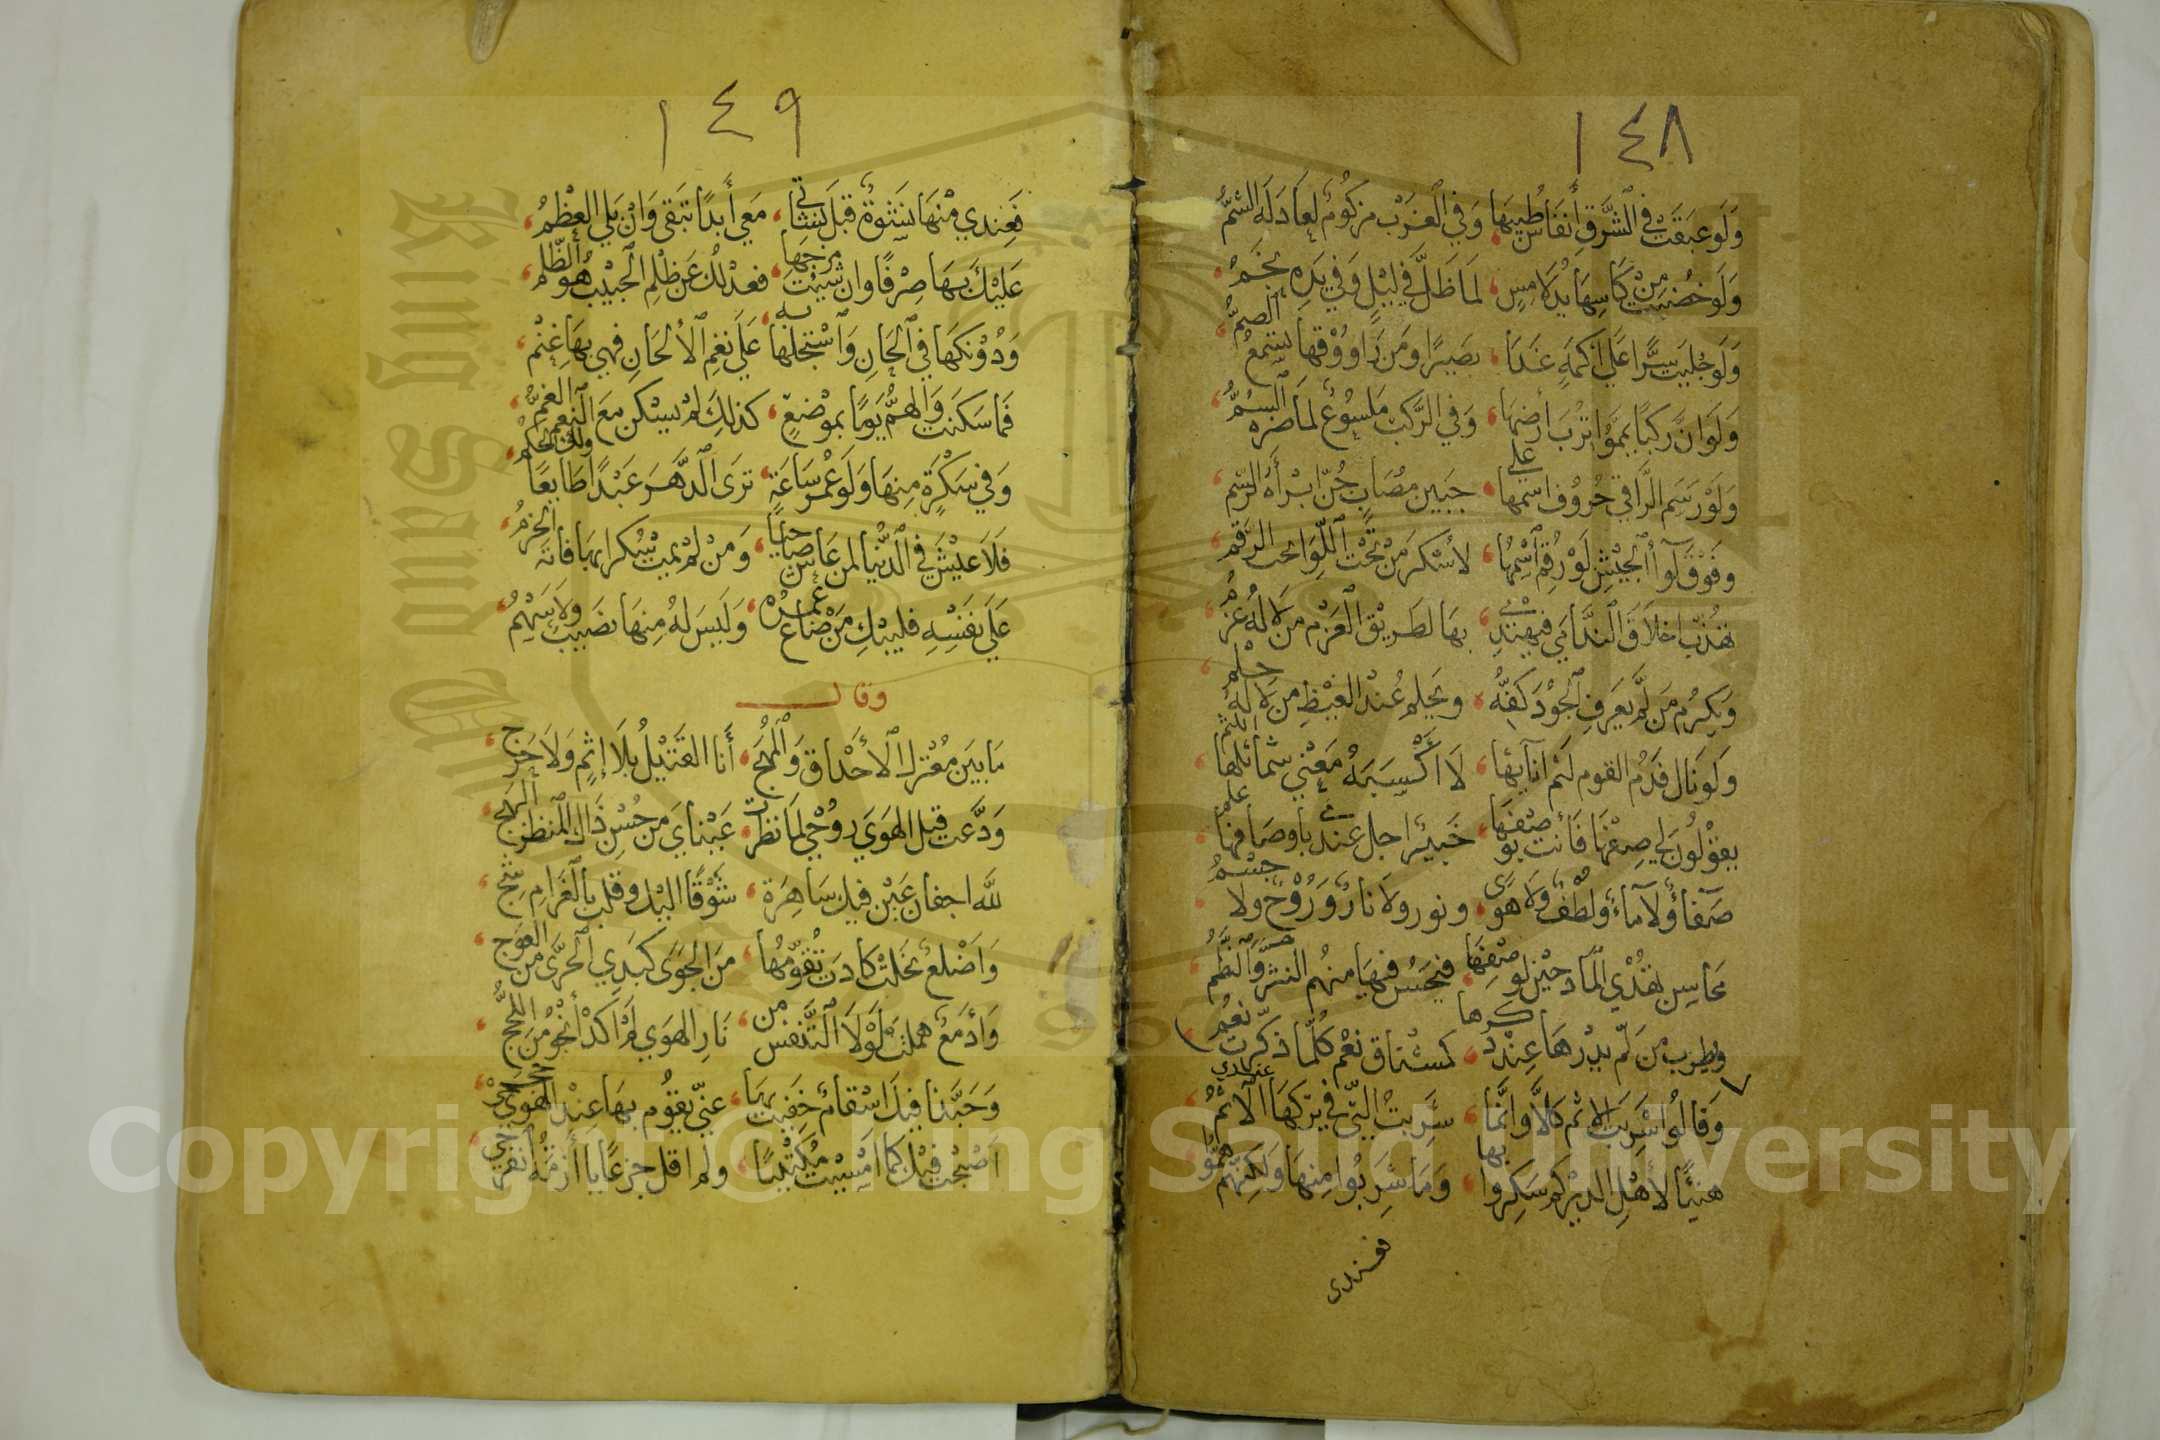 ١٤٨
وَلَو عبَقَت في الشَّرقِ أنفَاسُ طِيبِهَا وَفي الْغَرْب مزكُومٌ لعَادَلَهُ الشمُّ
وَلَو خُضبَت مِنْ كَاسِهَا يدُ لامِسٍ لمَا ظَلَّ في ليْلٍ وَفي يَدِهِ نجْمُ
وَلَو جُليَت سِرًّا عَلي اكمَهٍ غَدَا بصَيرًا ومَن رَاووُقها يسْمعُ الصمُّ
وَلَوَ انَّ ركبًا يمَّمَوُا تُرْبَ أرضِهَا وَفي الرَّكب مَلسوُعٌ لمَا ضره السُمُّ
وَلَوْ رَسَم الرَّاقي حُروُف اسمها علي جَبين مصَابٍ جُنّ ابْرأهُ الرّسم
وفَوْقَ لوآء الجَيْش لَوْ رُقِمَ اسْمُهَا لأسْكرَ مَنْ تَحْتَ اللّوَا تحت الرقم
تهُذّب اخلاقَ النّدَامي فيهْتدِي بهَا لطَريْق الْعَزْم مَن لا لهُ عَزْمُ
وَيكرُم مَن لَم يَعرفِ الجُودَ كَفّهُ ويحلم عُندَ الغيْظِ من لا لهُ حلم
وَلَو نَال فَدْم القوم لَثم فدَامهَا لَا أكْسَبَهُ مَعْني شمائلها اللثم
يقوْلُونَ لي صِفْهَا فَأنت بوَصْفهَا خَبيرٌ اجل عندي بأوصَافهَا علم
صَفَاءٌ وَلا مَاءٌ ولُطْفٌ وَلا هَوًى ونور ولا نارٌ وَرُوْحٌ ولا جسْمُ
محَاسِن تهْدي المادحيْن لوصْفهَا فيَحسُن فيهَا منهُم النثر والنَّظْمُ
ويَطرب مَن لَم يدْرهَا عِنْد ذكرها كمشْتاق نُعْم كُلّمَا ذكرت نُعْم
وَقَالُوا شربَت الاثم كَلّا وانَّمَا شرَبتُ الّتي في تركهَا عندي الاثْمُ
هنيئًا لأهْلِ الديْر كم سَكِروا بها وَمَا شَربُوا مِنهَا وَلكِنّهُم همُّوا
فعندي
١٤٩
فَعِندِي مِنْهَا نشَوةٌ قبْلَ نشأتي مَعي أبدًا تبقَى وَانْ بَلي العظْمُ
عَليْكَ بهَا صِرْفًا وان شئت مزجها فعدْلُك عَن ظلْمِ الحبيْب هُو الظّلم
وَدُوْنكهَا في الحَانِ وَاسْتَجلهَا به عَلَي نغم الألحَان فهي بهَا غنم
فَما سَكنَت وَالهمُّ يَومًا بموضعٍ كذلِكَ لم يسْكن مَعَ النغم الغم
وَفي سَكْرَةٍ مِنهَا وَلَو عُمْر سَاعَةٍ ترَى الدَّهرَ عَبْدًا طَائعًا ولك الحكم
فَلا عيْشَ في الدّنْيا لمن عَاش صَاحيًا وَمنْ لم يمت سُكرا بهَا فاته الحزمُ
عَلَي نفسِهِ فليَبْكِ مَنْ ضَاعَ عمرُه وَلَيسَ لهُ مِنهَا نصَيبٌ ولا سَهْمُ
وقال
مَا بَينَ مُعْتَرك الأحْدَاق وَالمُهَجِ أنَا القَتيْلُ بلَا إثمٍ وَلا حَرج
وَدَّعت قبل الهوَي روُحْي لمَا نظرت عَينَاي مَن حُسْنِ ذَاك المنظر البهج
للَّه اجفان عَيْن فيك سَاهِرَة شوْقًا اليْك وقلب بالغَرامِ شَجِ
وَاضْلعٌ نحلتْ كادَت تُقوِّمُها مِنَ الجوَى كَبدِي الحرَّى من العوج
وَأدْمعٌ هملت لَوْلَا التّنفّس من نَارِ الهوَي لَم اكَدْ أنجُو مِنَ اللجج
وَحَبَّذَا فيكَ اسْقَامٌ خَفيت بهَا عنّي تقوُم بهَا عِنْد الهَوَي حججي
اَصْبحْت فيْك كما امْسَيْت مُكتئبًا ولم اقل جزعًا يا أزمَةُ انفرجي